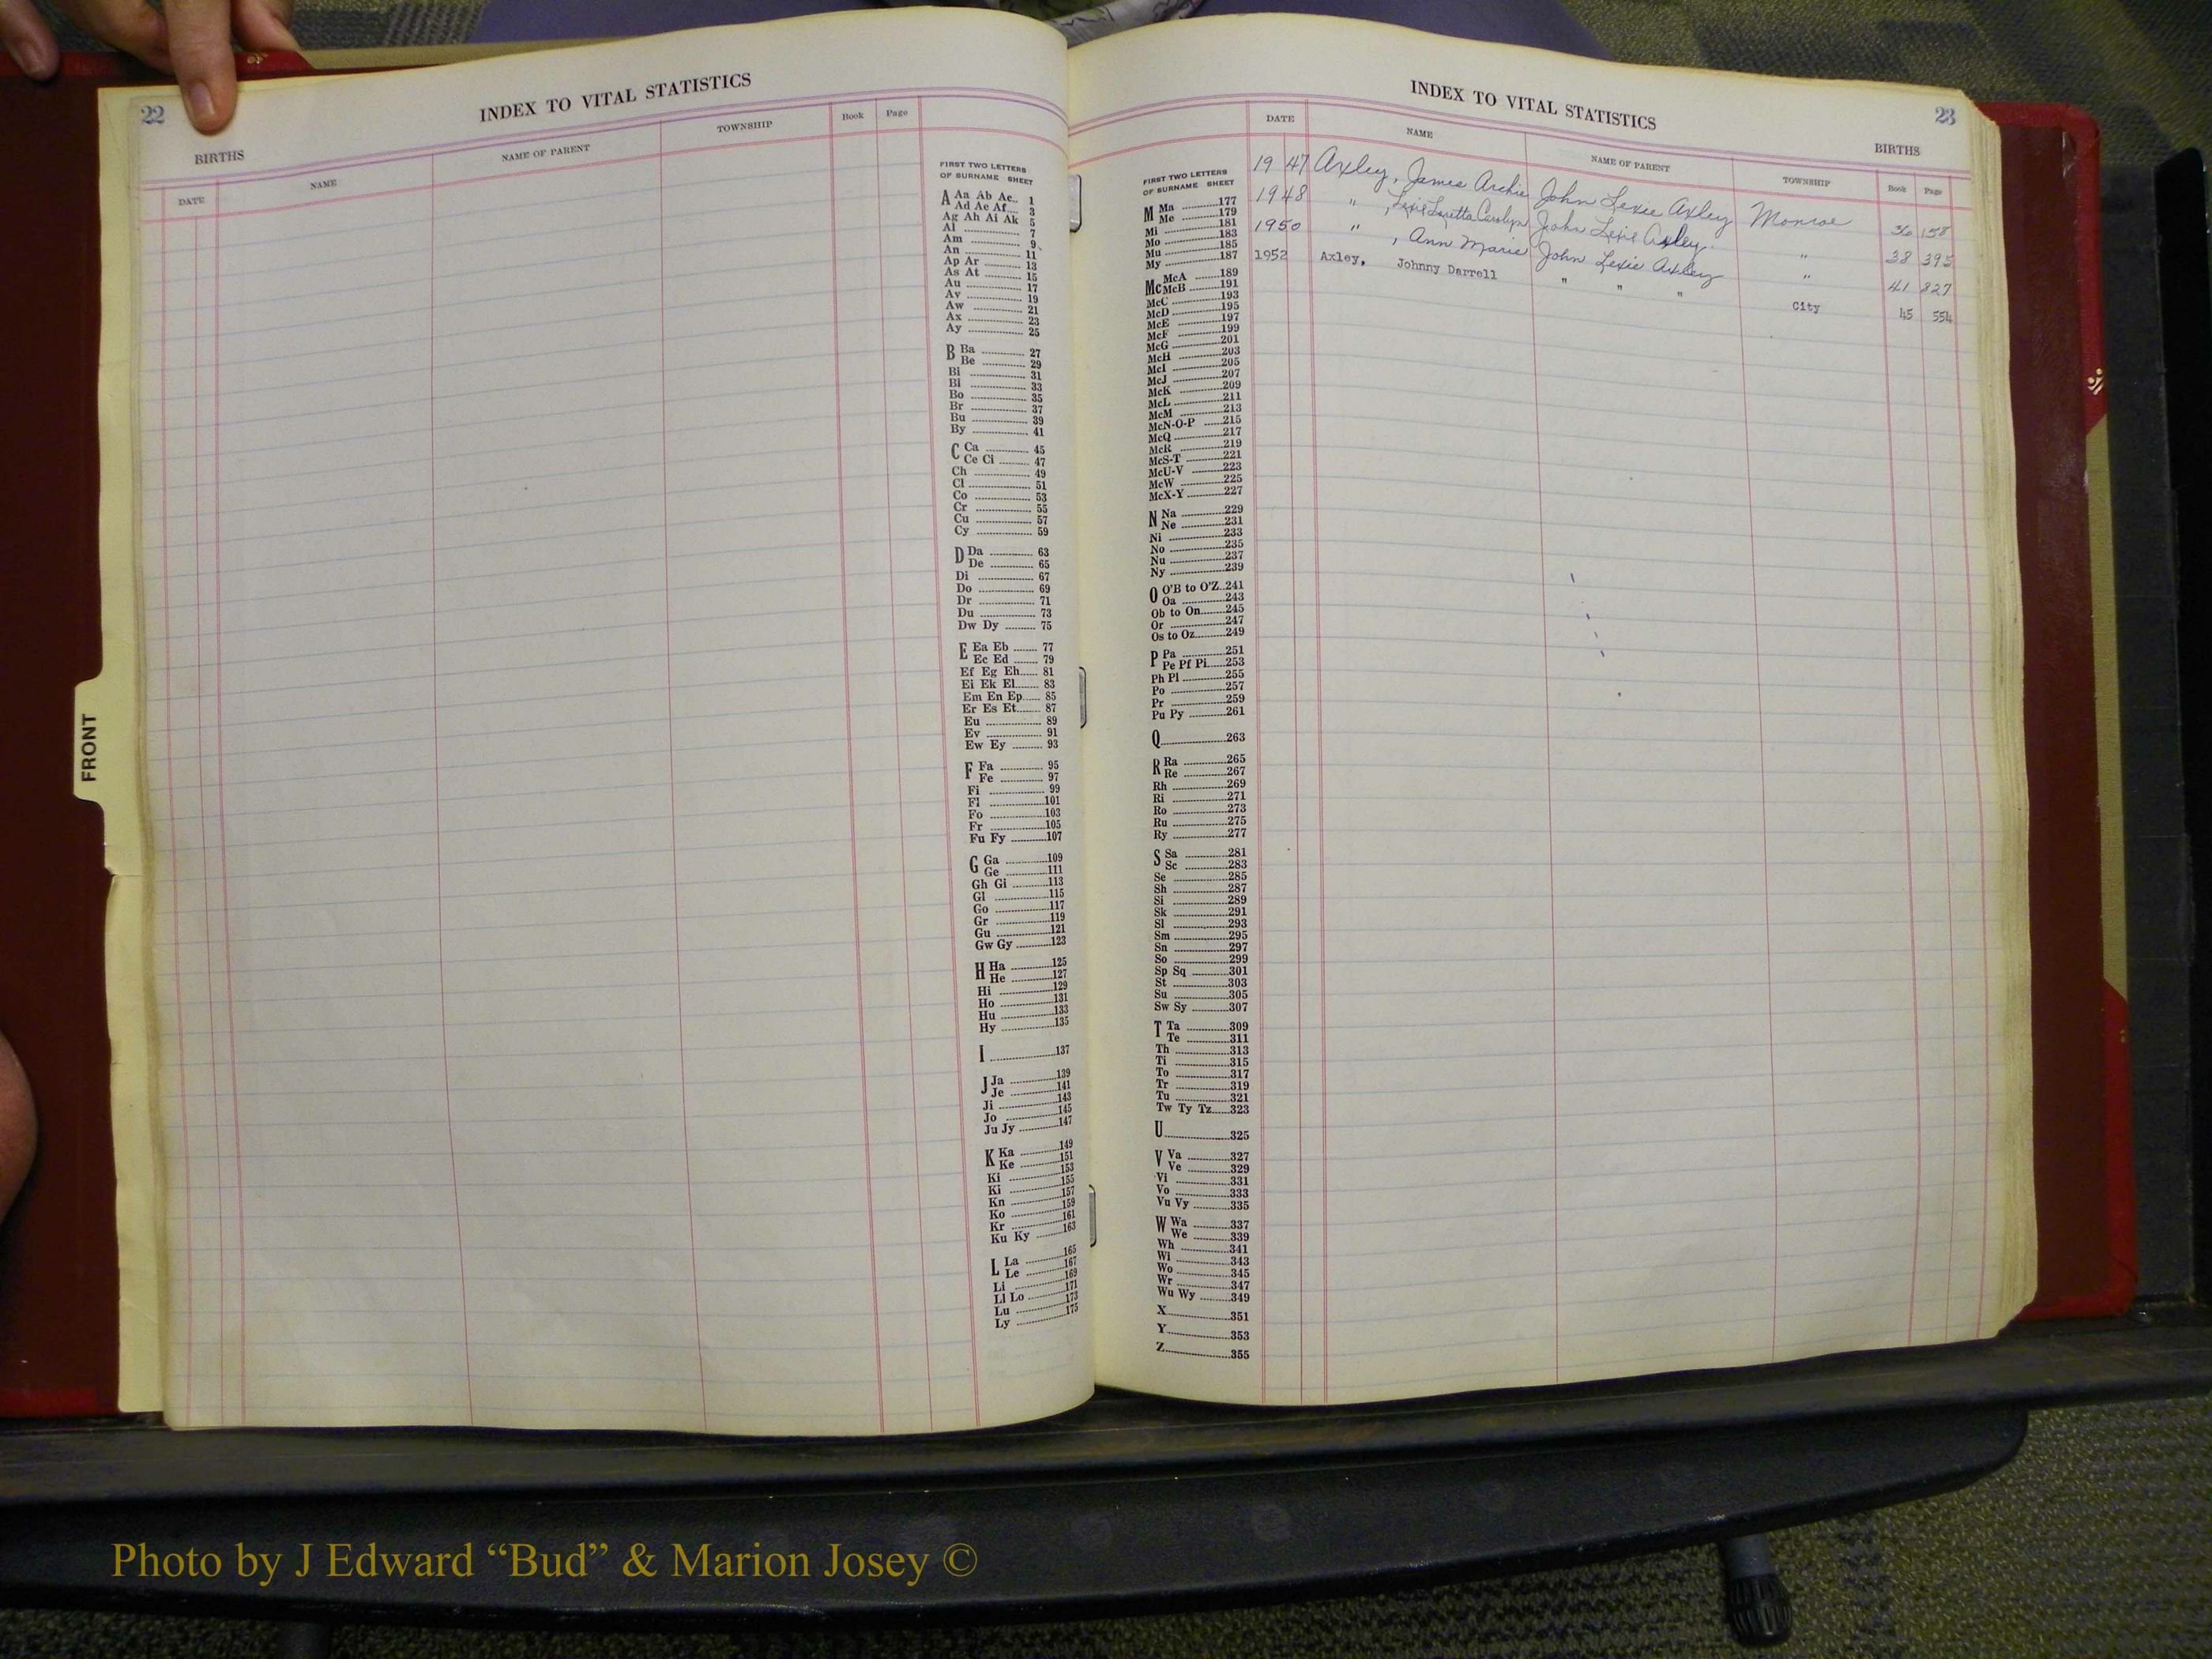 22
INDEX TO VITAL STATISTICS
BIRTHS
DATE
NAME
NAME OF PARENT
TOWNSHIP
Book
Page
FIRST TWO LETTERS
OF SURNAME SHEET
A Aa Ab Ac.. 1
Ad Ae Af.... 3
Ag Ah Ai Ak 5
Al ............ 7
Am ............ 9
An ............ 11
Ap Ar ............ 13
As At ............ 15
Au ............ 17
Av ............ 19
Aw ............ 21
Ax ............ 23
Ay ............ 25
B Ba ............ 27
Be ............ 29
Bi ............ 31
Bl ............ 33
Bo ............ 35
Br ............ 37
Bu ............ 39
By ............ 41
C Ca ............ 45
Ce Ci ........ 47
Ch ............ 49
Cl ............ 51
Co ............ 53
Cr ............ 55
Cu ............ 57
Cy ............ 59
D Da ............ 63
De ............ 65
Di ............ 67
Do ............ 69
Dr ............ 71
Du ............ 73
Dw Dy ........ 75
E Ea Eb ........ 77
Ec Ed ........ 79
Ef Eg Eh...... 81
Ei Ek El........ 83
Em En Ep...... 85
Er Es Et........ 87
Eu ............ 89
Ev ............ 91
Ew Ey ........ 93
F Fa ............ 95
Fe ............ 97
Fi ............ 99
Fl ............101
Fo ............103
Fr ............105
Fu Fy ........107
G Ga ............109
Ge ............111
Gh Gi ........113
Gl ............115
Go ............117
Gr ............119
Gu ............121
Gw Gy ........123
H Ha ............125
He ............127
Hi ............129
Ho ............131
Hu ............133
Hy ............135
I ............137
J Ja ............139
Je ............141
Ji ............143
Jo ............145
Ju Jy ........147
K Ka ............149
Ke ............151
Ki ............153
Ki ............155
Kn ............157
Ko ............159
Kr ............161
Ku Ky ........163
L La ............165
Le ............167
Li ............169
Ll Lo ........171
Lu ............173
Ly ............175
FRONT
INDEX TO VITAL STATISTICS
23
BIRTHS
DATE
NAME
NAME OF PARENT
TOWNSHIP
Book
Page
1947 Axley, James Archie John Lexie Axley Monroe 36 158
1948 " , Lexie Loretta Carolyn John Lexie Axley. " 38 395
1950 " , Ann Marie John Lexie Axley " 41 827
1952 Axley, Johnny Darrell " " " City 45 554
FIRST TWO LETTERS
OF SURNAME SHEET
M Ma ............177
Me ............179
Mi ............181
Mo ............183
Mu ............185
My ............187
Mc McA ........189
McB ........191
McC ............193
McD ............195
McE ............197
McF ............199
McG ............201
McH ............203
McI ............205
McJ ............207
McK ............209
McL ............211
McM ............213
McN-O-P ......215
McQ ............217
McR ............219
McS-T ........221
McU-V ........223
McW ............225
McX-Y ........227
N Na ............229
Ne ............231
Ni ............233
No ............235
Nu ............237
Ny ............239
O O'B to O'Z..241
Oa ............243
Ob to On......245
Or ............247
Os to Oz........249
P Pa ............251
Pe Pf Pi......253
Ph Pl ........255
Po ............257
Pr ............259
Pu Py ........261
Q............263
R Ra ............265
Re ............267
Rh ............269
Ri ............271
Ro ............273
Ru ............275
Ry ............277
S Sa ............281
Sc ............283
Se ............285
Sh ............287
Si ............289
Sk ............291
Sl ............293
Sm ............295
Sn ............297
So ............299
Sp Sq ........301
St ............303
Su ............305
Sw Sy ........307
T Ta ............309
Te ............311
Th ............313
Ti ............315
To ............317
Tr ............319
Tu ............321
Tw Ty Tz......323
U............325
V Va ............327
Ve ............329
Vi ............331
Vo ............333
Vu Vy ........335
W Wa ............337
We ............339
Wh ............341
Wi ............343
Wo ............345
Wr ............347
Wu Wy ........349
X............351
Y............353
Z............355
Photo by J Edward “Bud” & Marion Josey ©